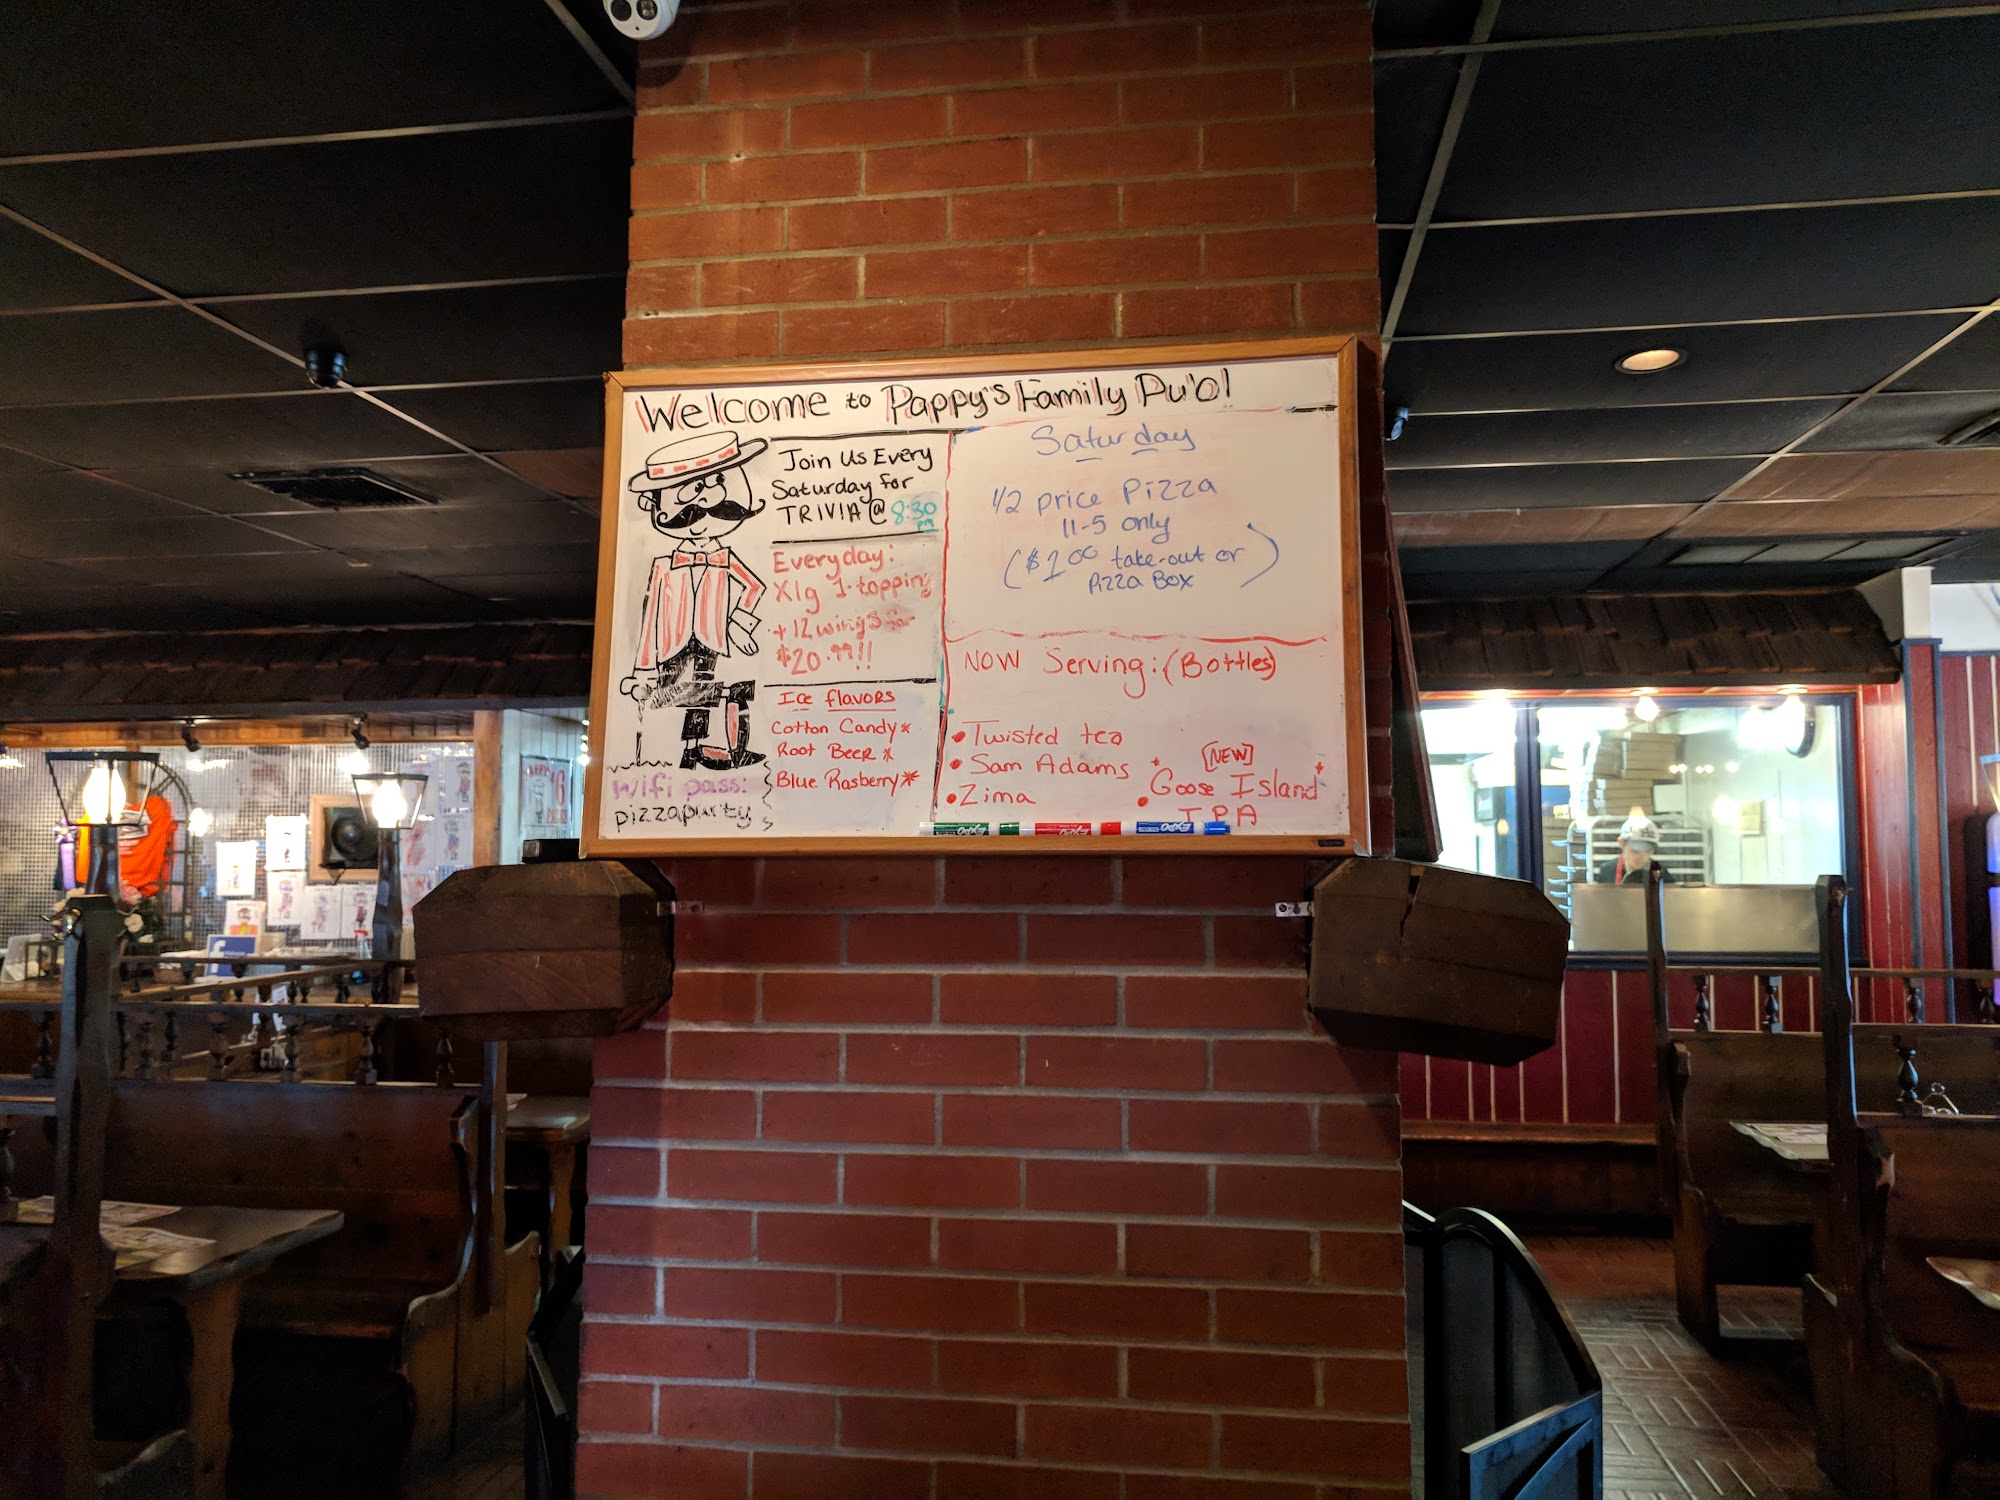 Welcome to Pappy's Family Pu'o!
Join Us Every
Saturday for
TRIVIA @ 8:30
pm
Everyday:
Xlg 1-topping
+ 12 wings for
$20.99!!
Ice flavors
Cotton Candy*
Root Beer *
Blue Rasberry*
Wifi pass:
pizzaparty
Saturday
1/2 price Pizza
11-5 only
($1.00 take-out or
Pizza Box)
NOW Serving: (Bottles)
• Twisted tea
• Sam Adams
• Zima
[NEW]
• Goose Island
IPA
EXPO
EXPO
EXPO